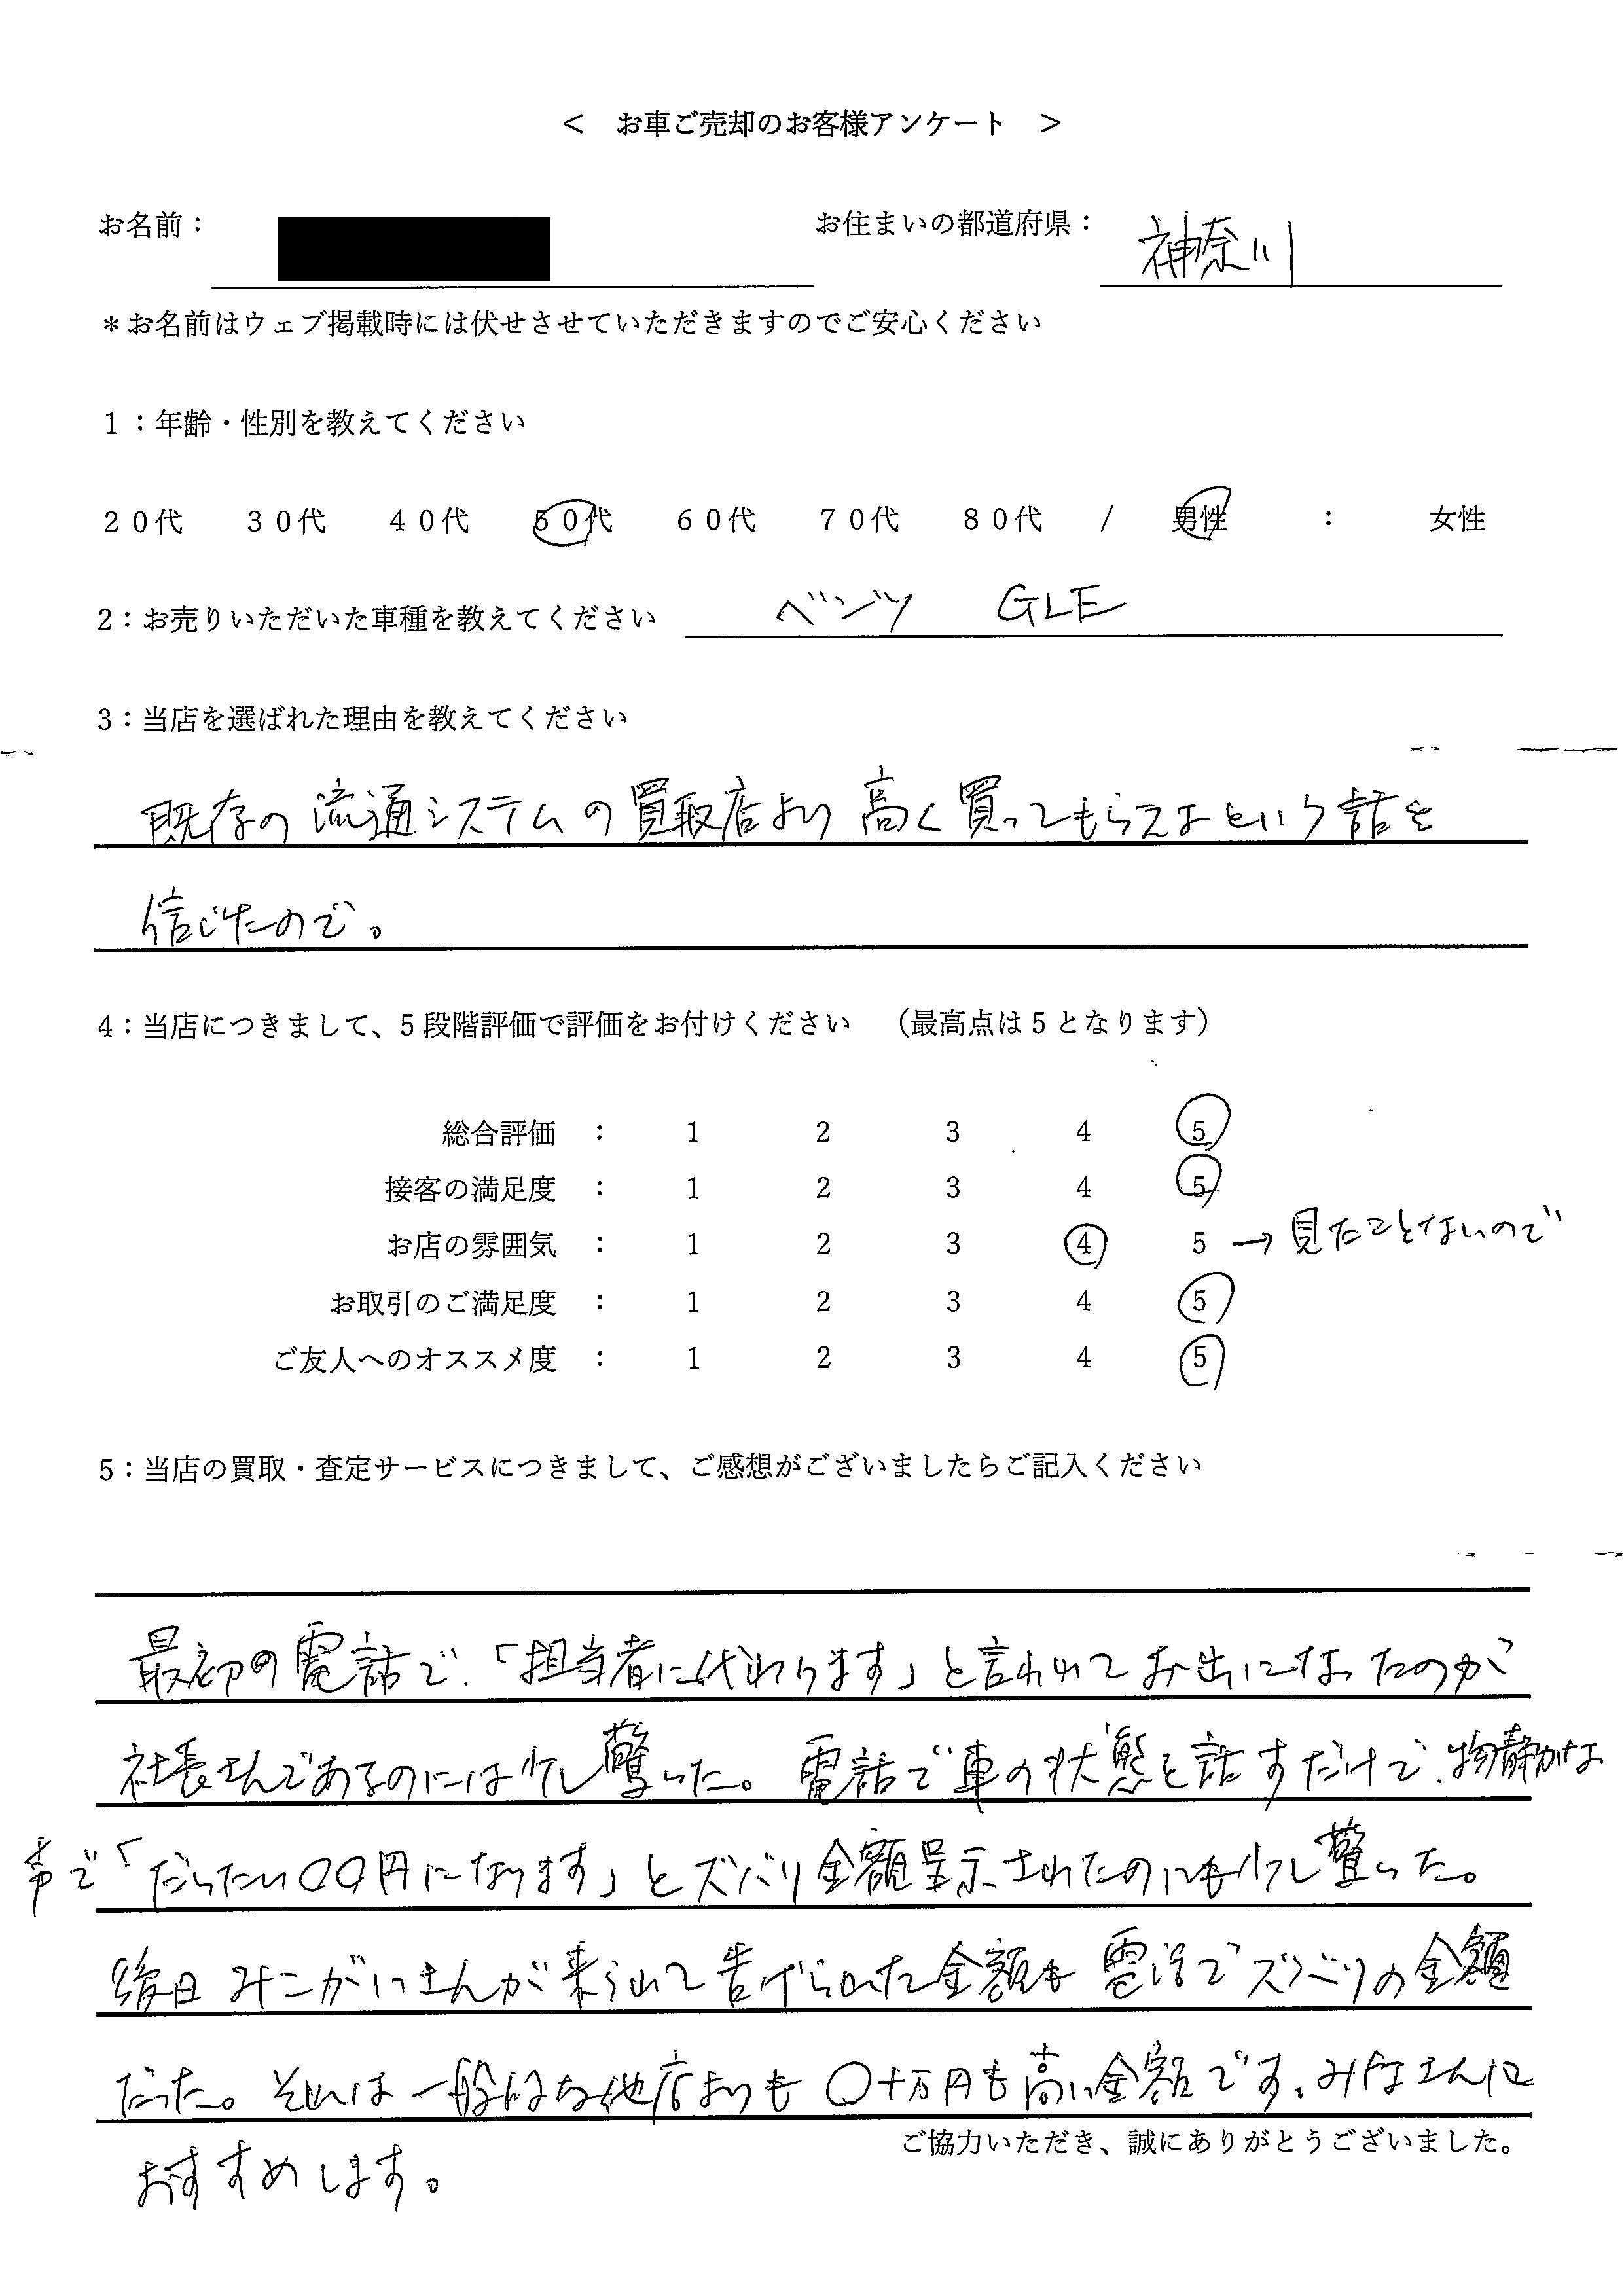 ＜　お車ご売却のお客様アンケート　＞
お名前：　お住まいの都道府県：　神奈川
＊お名前はウェブ掲載時には伏せさせていただきますのでご安心ください
1：年齢・性別を教えてください
２０代　３０代　４０代　５０代　６０代　７０代　８０代　/　男性　：　女性
2：お売りいただいた車種を教えてください　ベンツ　GLE
3：当店を選ばれた理由を教えてください
既存の流通システムの買取店より高く買ってもらえるという話を
信じたので。
4：当店につきまして、5段階評価で評価をお付けください　（最高点は5となります）
総合評価　：　1　2　3　4　5
接客の満足度　：　1　2　3　4　5
お店の雰囲気　：　1　2　3　4　5　→見たことないので
お取引のご満足度　：　1　2　3　4　5
ご友人へのオススメ度　：　1　2　3　4　5
5：当店の買取・査定サービスにつきまして、ご感想がございましたらご記入ください
最初の電話で、「担当者に代わります」と言われてお出になったのが
社長さんであるのには少し驚いた。電話で車の状態を話すだけで、物静かな
声で「だいたい〇〇円になります」とズバリ金額呈示されたのにも少し驚いた。
後日みこがいさんが来られて告げられた金額も電話でズバリの金額
だった。それは一般的な他店よりも〇十万円も高い金額です。みなさんに
ご協力いただき、誠にありがとうございました。
おすすめします。